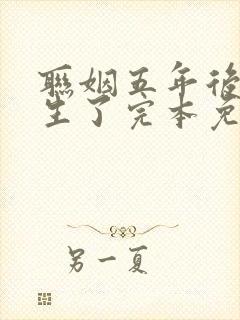 聯姻五年後
生了完本免
另一夏